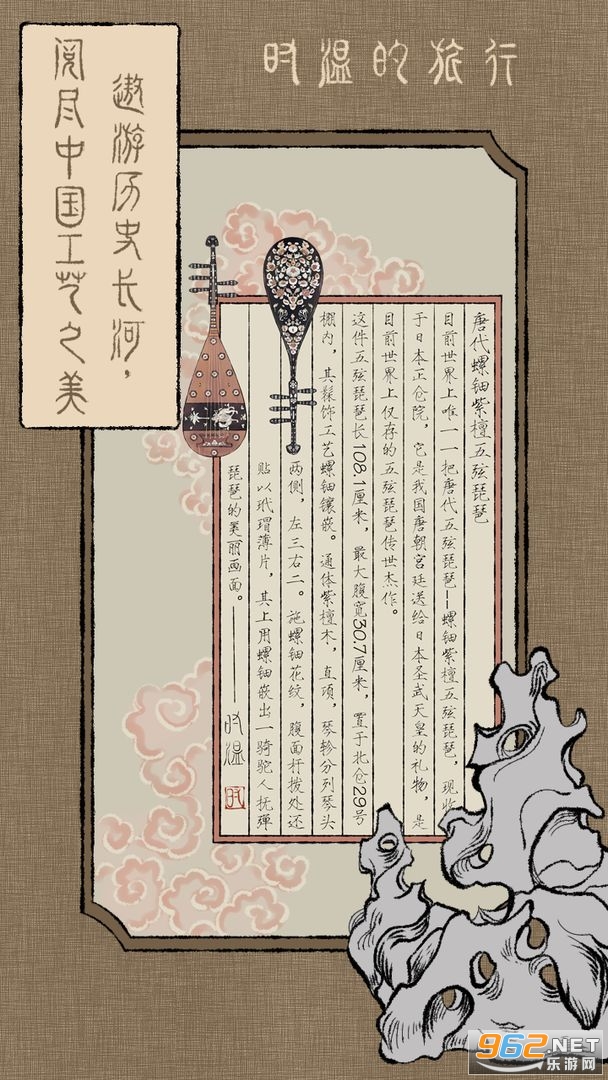 时温的旅行
遨游历史长河，
阅尽中国工艺之美
唐代螺钿紫檀五弦琵琶
目前世界上唯一一把唐代五弦琵琶—螺钿紫檀五弦琵琶，现收
于日本正仓院，它是我国唐朝宫廷送给日本圣武天皇的礼物，是
目前世界上仅存的五弦琵琶传世杰作。
这件五弦琵琶长108.1厘米，最大腹宽30.7厘米，置于北仓29号
棚内，其髹饰工艺螺钿镶嵌。通体紫檀木，直项，琴轸分列琴头
两侧，左三右二。施螺钿花纹，腹面杆拨处还
贴以玳瑁薄片，其上用螺钿嵌出一骑驼人抚弹
琵琶的美丽画面。——时温
时
962.NET
乐游网